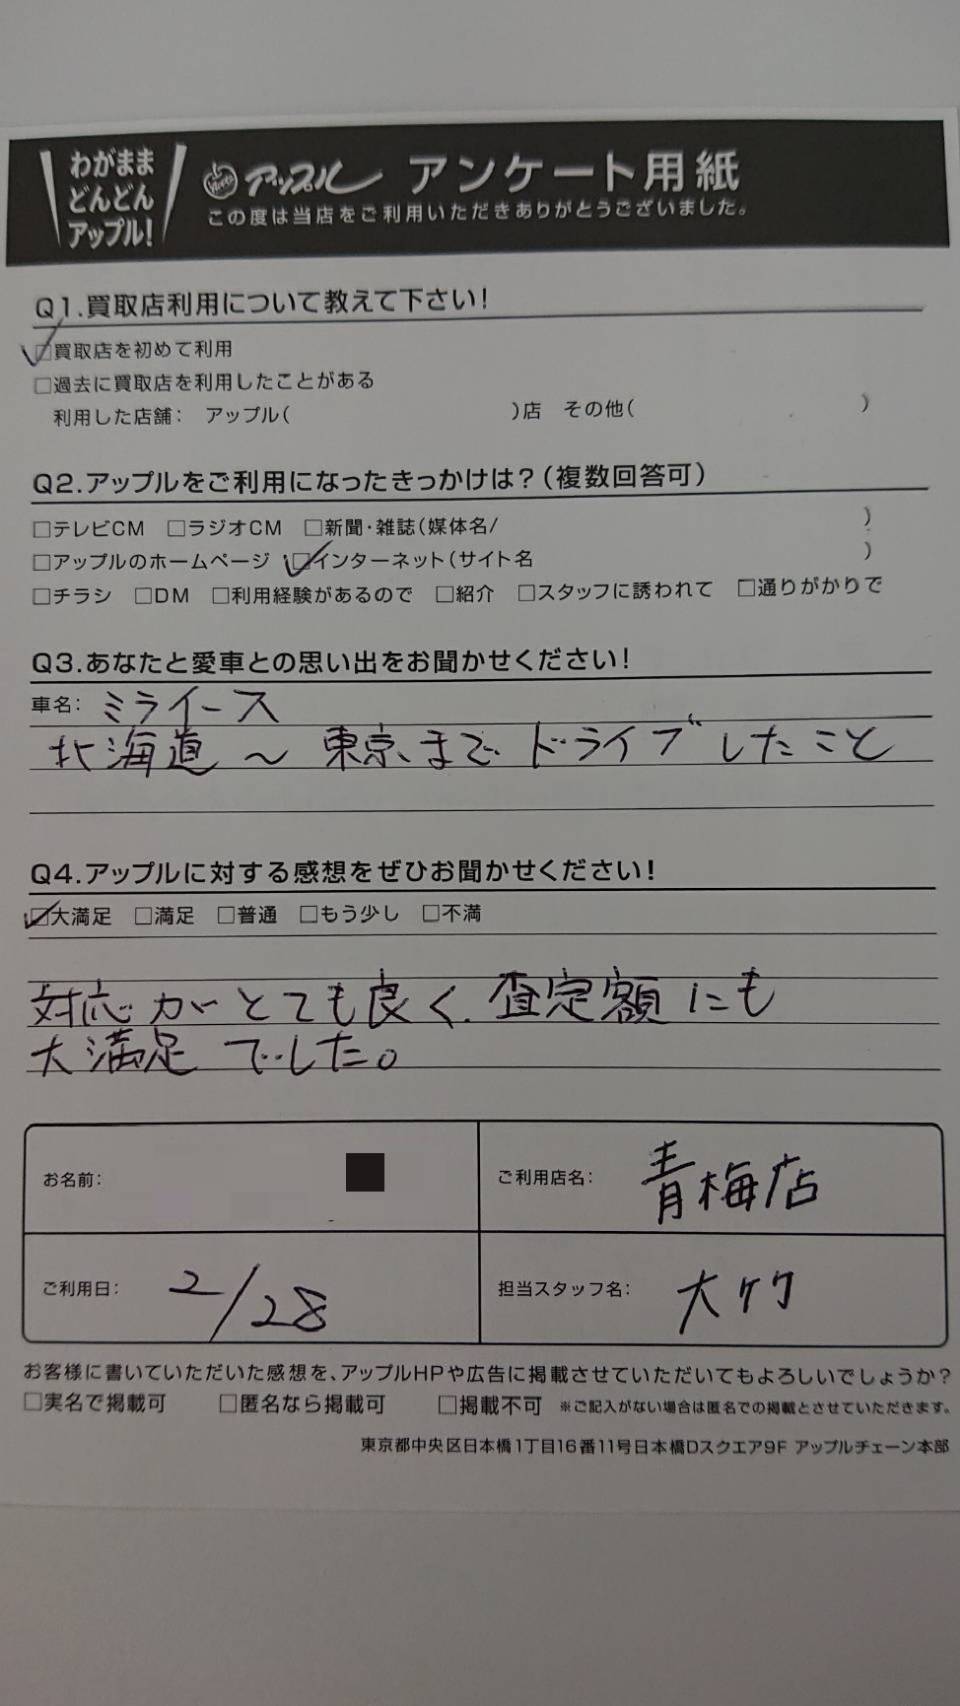 わがまま
どんどん
アップル!
アップル アンケート用紙
この度は当店をご利用いただきありがとうございました。
Q1.買取店利用について教えて下さい!
□買取店を初めて利用
□過去に買取店を利用したことがある
利用した店舗: アップル( )店 その他( )
Q2.アップルをご利用になったきっかけは?(複数回答可)
□テレビCM □ラジオCM □新聞・雑誌(媒体名/ )
□アップルのホームページ □インターネット(サイト名 )
□チラシ □DM □利用経験があるので □紹介 □スタッフに誘われて □通りがかりで
Q3.あなたと愛車との思い出をお聞かせください!
車名: ミライース
北海道～東京までドライブしたこと
Q4.アップルに対する感想をぜひお聞かせください!
□大満足 □満足 □普通 □もう少し □不満
対応がとても良く、査定額にも
大満足でした。
お名前:
ご利用店名: 青梅店
ご利用日: 2/28
担当スタッフ名: 大竹
お客様に書いていただいた感想を、アップルHPや広告に掲載させていただいてもよろしいでしょうか?
□実名で掲載可 □匿名なら掲載可 □掲載不可 ※ご記入がない場合は匿名での掲載とさせていただきます。
東京都中央区日本橋1丁目16番11号日本橋Dスクエア9F アップルチェーン本部